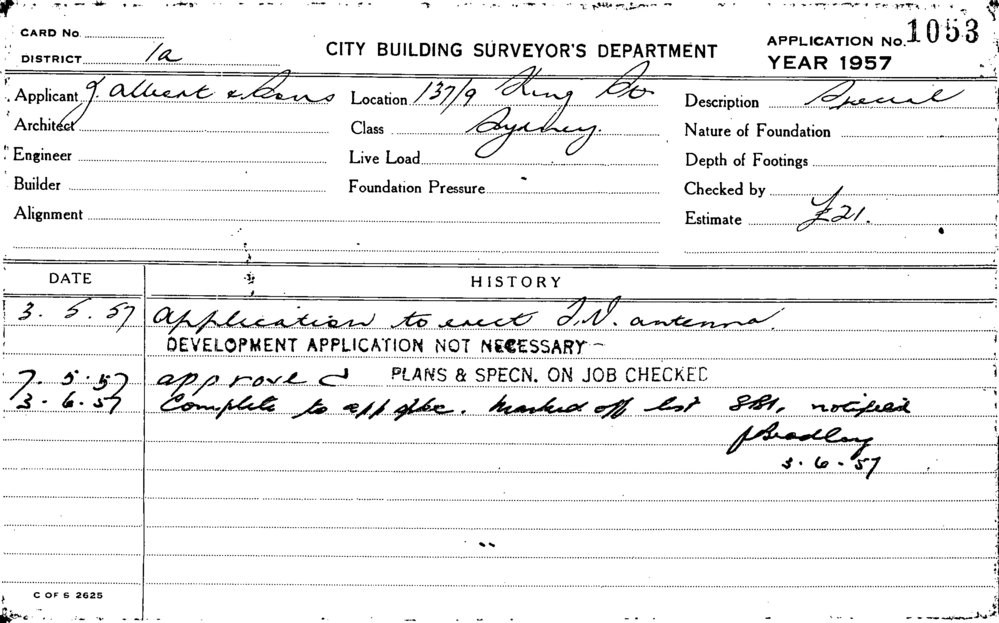 CARD No.
DISTRICT 1a
CITY BUILDING SURVEYOR'S DEPARTMENT
APPLICATION No. 1053
YEAR 1957
Applicant J. Albert & Sons Location 137/9 King St. Description Special
Architect Class Sydney. Nature of Foundation
Engineer Live Load Depth of Footings
Builder Foundation Pressure Checked by
Alignment Estimate £21.
DATE HISTORY
3. 5. 57 Application to erect T.V. antenna.
DEVELOPMENT APPLICATION NOT NECESSARY -
7. 5. 57 approved PLANS & SPECN. ON JOB CHECKED
3. 6. 57 Complete to app. Marked off list notified
J Bradley
3. 6. 57
C OF S 2625